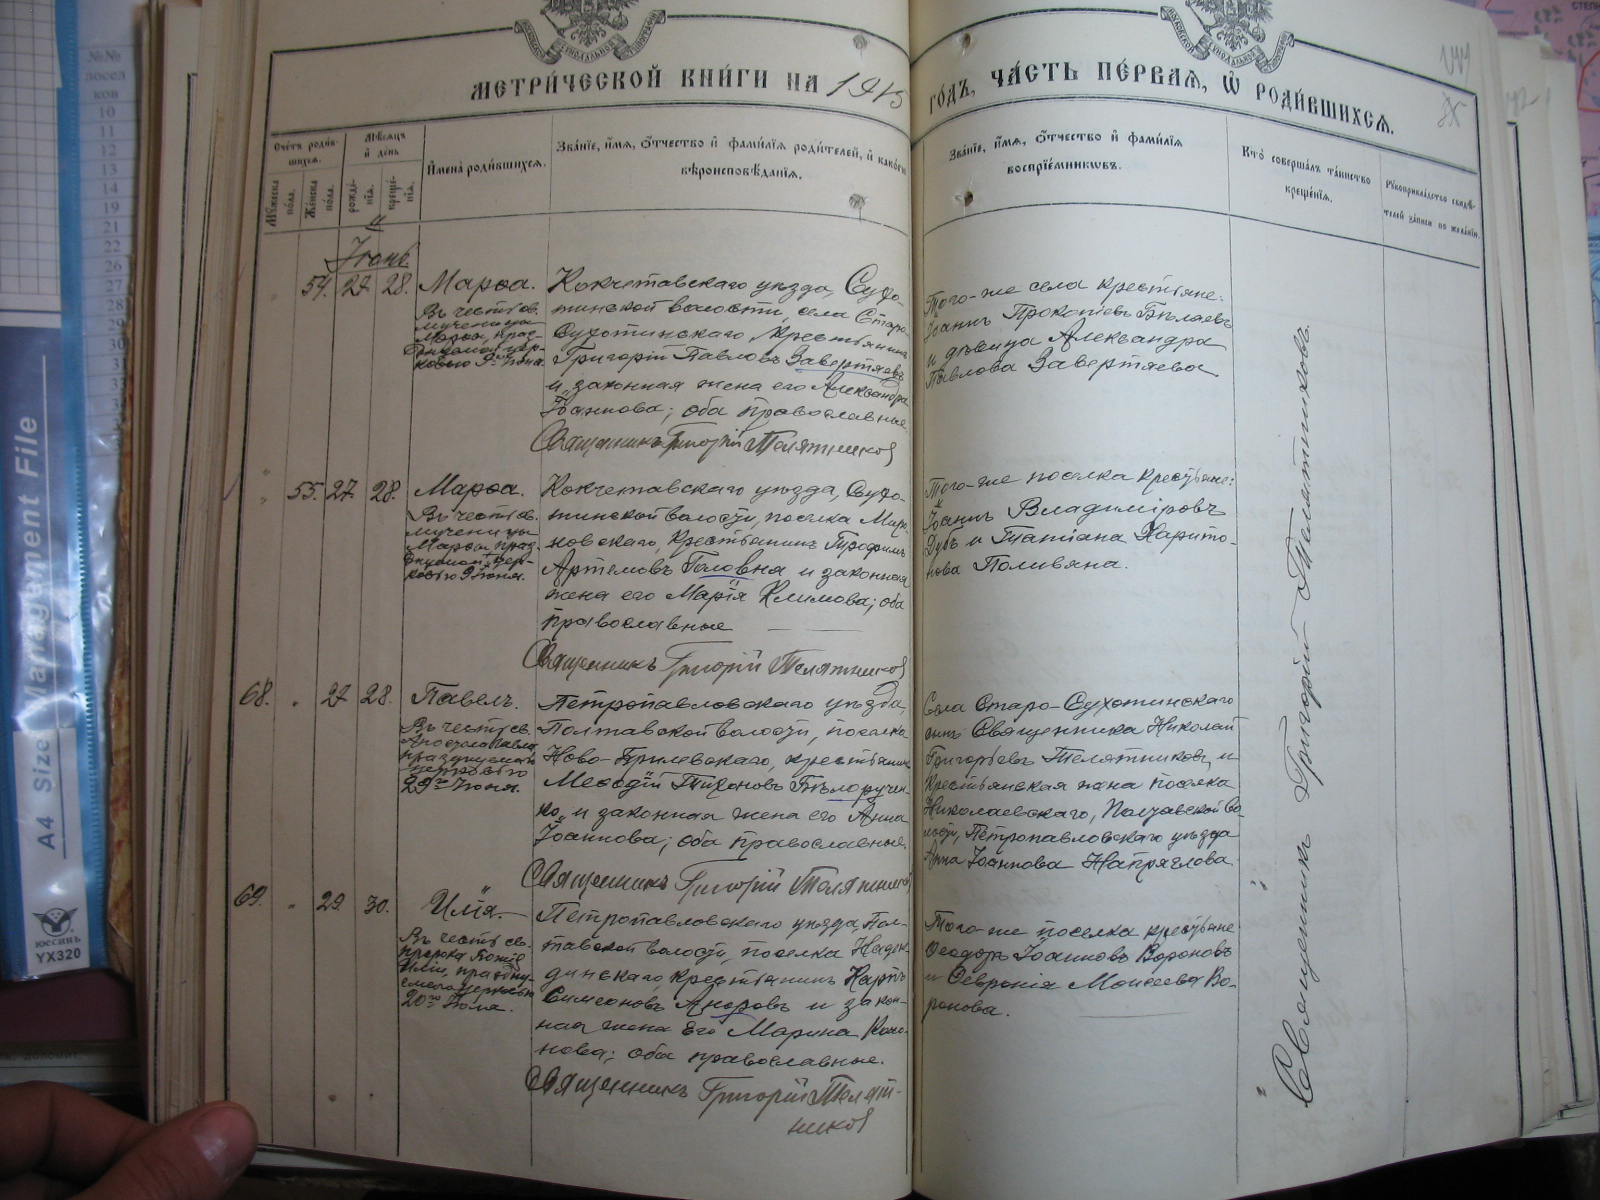 МЕТРИ́ЧЕСКОЙ КНИ́ГИ НА 1913
ГО́ДЪ, ЧА́СТЬ ПЕ́РВАЯ, Ѡ҆ РОДИ́ВШИХСЯ.
Сче́тъ роди́в-
шихся.
Мꙋ́жеска по́ла.
Же́нска по́ла.
Мѣ́сяцъ
и҆ де́нь
рожде́-
нїя.
креще́-
нїя.
И҆мена̀ роди́вшихся.
Зва́нїе, и҆́мя, ѻ҆́тчество и҆ фами́лїя роди́телей, и҆ како́гѡ
вѣроисповѣ́данїя.
Зва́нїе, и҆́мя, ѻ҆́тчество и҆ фами́лїя
воспрїе́мникѡвъ.
Кто̀ соверша́лъ та́инство
креще́нїя.
Рꙋкоприкла́дство свидѣ́-
телей за́писи по жела́нїи.
Іюнь.
54. 27 28. Марѳа.
Въ честь св.
мученицы
Марѳы, праз-
днуемой цер-
ковью 9го Іюня.
Кокчетавскаго уѣзда, Сухо-
тинской волости, села Старо-
Сухотинскаго, крестьянинъ
Григорій Павловъ Завертяевъ
и законная жена его Александра
Іоаннова; оба православные
Священникъ Григорій Телятников
Того-же села крестьяне:
Іоаннъ Прокопіевъ Бѣляевъ
и дѣвица Александра
Павлова Завертяева
55. 27. 28. Марѳа.
Въ честь св.
мученицы
Марѳы, праз-
днуемой цер-
ковью 9 Іюня.
Кокчетавскаго уѣзда, Сухо-
тинской волости, поселка
новскаго, крестьянинъ Трофимъ
Артемовъ Головня и законная
жена его Марія Климова; оба
православные
Священникъ Григорій Телятников
Того-же поселка крестьяне:
Іоаннъ Владиміровъ
Дубъ и Татіана Харито-
нова Поливяна.
68. 27 28. Павелъ.
Въ честь св.
Апостола Павла,
празднуемаго
церковью
29го Іюня.
Петропавловскаго уѣзда,
Полтавской волости, поселка
крестьянинъ
Меѳодій Тихоновъ Бѣлоручен-
ко, и законная жена его Анна
Іоаннова; оба православные.
Священникъ Григорій Телятников
Села Старо-Сухотинскаго
сынъ Священника Николай
Григорьевъ Телятниковъ, и
крестьянская жена поселка
Николаевскаго, Полтавской во-
лости, Петропавловскаго уѣзда
Анна Іоаннова Напряглова.
69. 29 30. Илія.
Въ честь св.
пророка Божія
Иліи, праздну-
емаго церковью
20го Іюля.
Петропавловскаго уѣзда Пол-
тавской волости, поселка Надеж-
динскаго, крестьянинъ Карпъ
Симеоновъ и закон-
ная жена его Марина Коно-
нова; оба православные.
Священникъ Григорій Телят-
ников
Того-же поселка крестьяне
Ѳеодоръ Іоанновъ Вороновъ
и Февронія Моисеева Во-
ронова.
Священникъ Григорій Телятниковъ.
Management File
A4 Size
YX320
№№
посел
ков
10
11
12
13
14
19
21
22
26
27
28
29
30
31